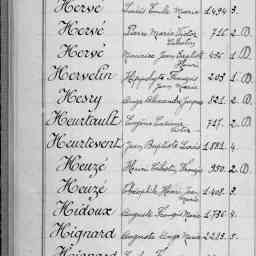 Hervé Louis Emile Marie 1.494 3.
Hervé Pierre Marie Victor Célestin 715. 2. (D)
Hervé Maurice Jean Baptiste Henri 496. 1. (D)
Hervelin Hippolyte François Jean Marie 203. 1. (D)
Hesry Ange Alexandre Jacques 821. 2. (D)
Heurtault Eugène Victor 717. 2. (D)
Heurtevent Jean Baptiste Louis 1.884 4.
Heuzé Henri Célestin François 950. 2. (D)
Heuzé Théophile Henri Jean Marie 1.408. 3.
Hidoux Auguste François Marie 1.730 4.
Hignard Auguste Ange Marie 2.223. 5.
Hignard